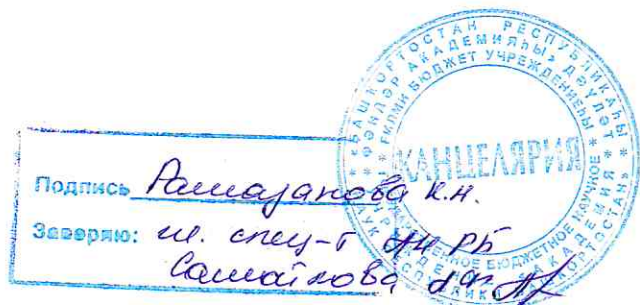 БАШҠОРТОСТАН РЕСПУБЛИКАҺЫ
ФӘНДӘР АКАДЕМИЯҺЫ» ДӘҮЛӘТ
ҒИЛМИ БЮДЖЕТ УЧРЕЖДЕНИЕҺЫ
КАНЦЕЛЯРИЯ
БЮДЖЕТНОЕ НАУЧНОЕ
АКАДЕМИЯ
Подпись Рамазанова К.Н.
Заверяю: гл. спец-т АН РБ
Самойлова